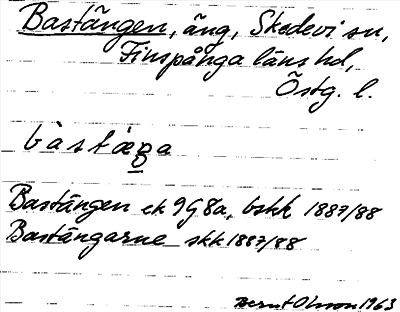 Bastängen, äng, Skedevi sn,
Finspånga läns hd,
Östg. l.
bàstæŋa
Bastängen ek 9G8a, bskk 1887/88
Bastängarne skk 1887/88
Bernt Olsson 1963